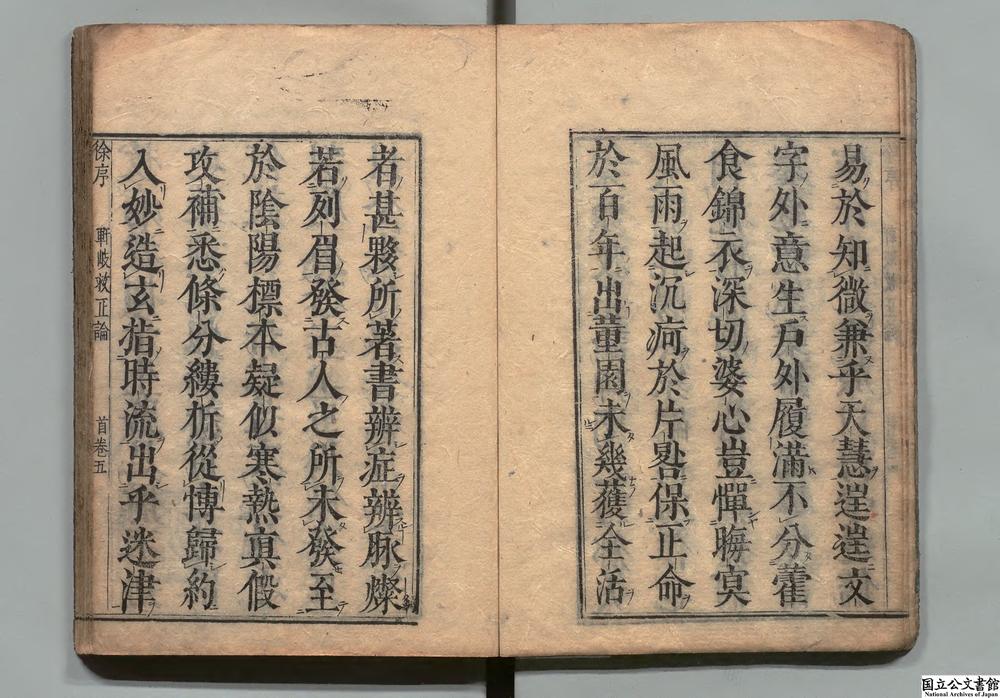 易於知微兼乎天慧逞逞文
字外意生戶外履滿不分藿
食錦衣深切婆心豈憚晦冥
風雨起沉痾於片晷保正命
於百年出董園未幾獲全活
者甚夥所著書辨症辨脉燦
若列眉發古人之所未發至
於陰陽標本疑似寒熱真假
攻補悉條分縷析從博歸約
入妙造玄指時流出乎迷津
徐序 軒岐救正論 首卷五
国立公文書館
National Archives of Japan